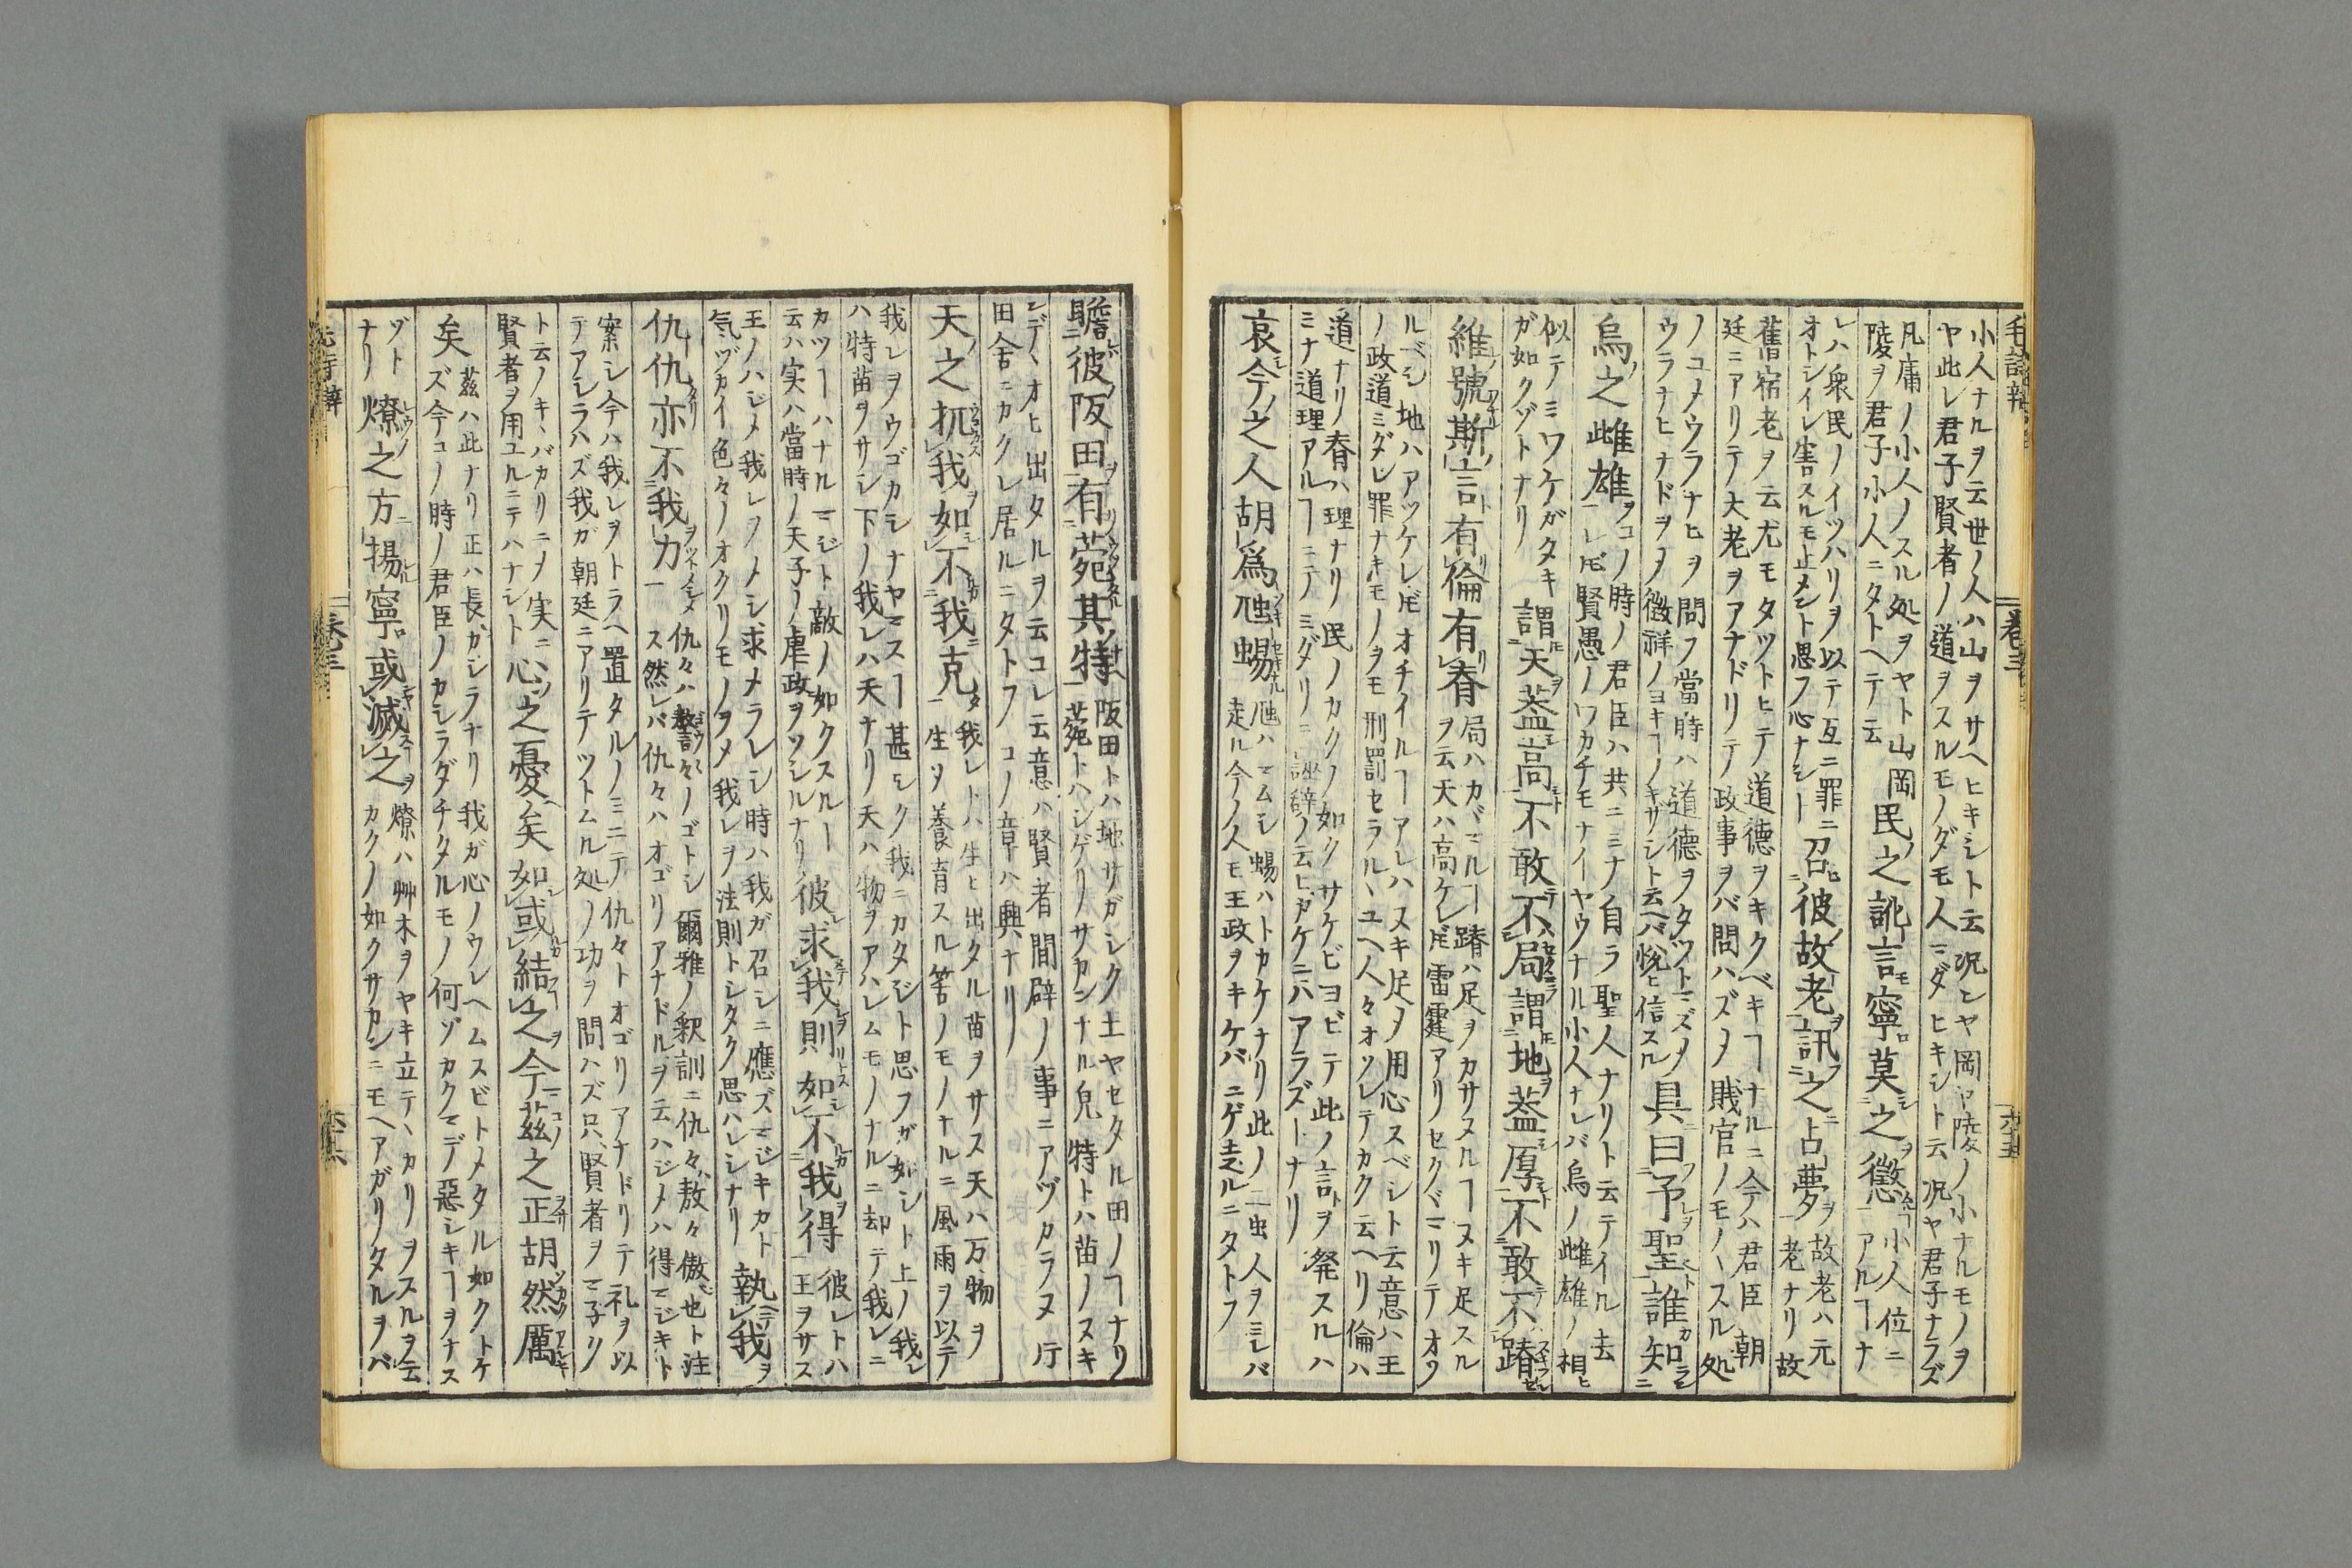 小人ナルヲ云世ノ人ハ山ヲサヘヒキシト云況ンヤ岡ヤ陵ノ小ナルモノヲ
ヤ此レ君子賢者ノ道ヲスルモノダモ人ミダヒキシト云況ヤ君子ナラズ
凡庸ノ小人ノスル処ヲヤト山岡
陵ヲ君子小人ニタトヘテ云
民之訛言寧莫之懲
小人位ニ
アルヿナ
レハ衆民ノイツハリヲ以テ互ニ罪ニ
オトシイレ害スルモ止メント思フ心ナシ
召彼故老訊之占夢
故老ハ元
老ナリ故
舊宿老ヲ云尤モタツトヒテ道德ヲキクベキヿナルニ今ハ君臣朝
廷ニアリテ大老ヲアナドリテ政事ヲバ問ハズメ賎官ノモノヽスル処
ノユメウラナヒヲ問フ當時ハ道德ヲタツトマズメ
ウラナヒナドヲメ徴祥ノヨキヿノキザシト云ヘバ悦ヒ信スル
具曰予聖誰知
烏之雌雄
コノ時ノ君臣ハ共ニミナ自ラ聖人ナリト云テイル去
レ𪜈賢愚ノワカチモナイヤウナル小人ナレバ烏ノ雌雄ノ相ヒ
似テミワケガタキ
ガ如クゾトナリ
謂天蓋高不敢不局謂地蓋厚不敢不蹐
維號斯言有倫有脊
局ハカヾマルヿ蹐ハ足ヲカサヌルヿヌキ足スル
ヲ云天ハ高ケレ𪜈雷霆アリセクヾマリテオワ
ルベシ地ハアツケレ𪜈オチイルヿアレハヌキ足メ用心スベシト云意ハ王
ノ政道ミダレ罪ナキモノヲモ刑罰セラルヽユヘ人々オソレテカク云ヘリ倫ハ
道ナリ脊ハ理ナリ民ノカクノ如クサケビヨビテ此ノ言ヲ発スルハ
ミナ道理アルヿニテミダリニ誣辟ノ云ヒガケニハアラズトナリ
哀今之人胡爲虺蜴
虺ハマムシ蜴ハトカケナリ此ノ二虫人ヲミレバ
走ル今ノ人モ王政ヲキケバニゲ走ルニタトフ
瞻彼阪田有菀其特
阪田トハ地サガシク土ヤセタル田ノヿナリ
菀トハシゲリノサカンナル皃特トハ苗ノヌキ
ンデヽオヒ出タルヲ云コレ云意ハ賢者間辟ノ事ニアヅカラヌ所
田舎ニカクレ居ルニタトフコノ章ハ興ナリ
天之扤我如不我克
我レトハ生ヒ出タル苗ヲサス天ハ万物ヲ
生ジ養育スル筈ノモノナルニ風雨ヲ以テ
我レヲウゴカシナヤマスヿ甚シク我ニカタジト思フガ如シト上ノ我レ
ハ特苗ヲサシ下ノ我レハ天ナリ天ハ物ヲアハレムモノナルニ却テ我レニ
カツヿハナルマジト敵ノ如クスルヿ
云ハ実ハ當時ノ天子ノ虐政ヲソシルナリ
彼求我則如不我得
彼レトハ
王ヲサス
王ノハジメ我レヲメシ求メラレシ時ハ我ガ召シニ應ズマジキカト
気ヅカイ色々ノオクリモノヲメ我レヲ法則トシタク思ハレシナリ
執我
仇仇亦不我力
仇々ハ謷々ノゴトシ爾雅ノ釈訓ニ仇々敖々傲也ト注
ス然レバ仇々ハオゴリアナドルヲ云ハジメハ得マジキト
案シ今ハ我レヲトラヘ置タルノミニテ仇々トオゴリアナドリテ礼ヲ以
テアシラハズ我ガ朝廷ニアリテツトムル処ノ功ヲ問ハズ只賢者ヲマ子リ
ト云ノキヽバカリニメ実ニ
賢者ヲ用ユルニテハナシト
心之憂矣如或結之今茲之正胡然厲
矣
茲ハ此ナリ正ハ長ガシラナリ我ガ心ノウレヘムスビトメタル如クトケ
ズ今コノ時ノ君臣ノカシラダチタルモノ何ゾカクマデ惡シキヿヲナス
ゾト
ナリ
燎之方揚寧或滅之
燎ハ艸木ヲヤキ立テヽカリヲスルヲ云
カクノ如クサカンニモヘアガリタルヲバ